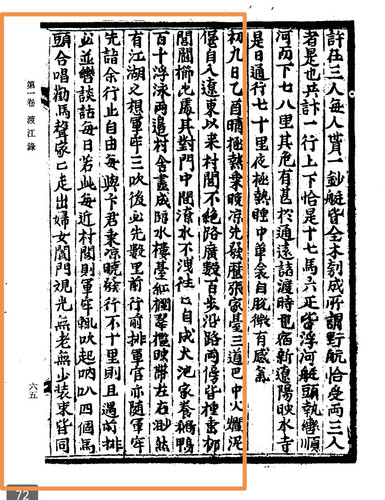 許任三人每人貰一鈔艇皆全木刳成所謂野航恰受兩三人
者是也共計一行上下恰是十七馬六疋皆浮河艇頭執轡順
河而下七八里其危有甚於通遠諸渡時也宿新遼陽映水寺
是日通行七十里夜極熱睡中單衾自脫微有感氣
初九日乙酉晴極熱乘曉凉先發歷張家臺三道巴中火爛泥
堡自入遼東以來村閭不絶路廣數百步沿路兩傍皆種垂柳
閭閻櫛比處其對門中間潦水不洩往々自成大池家養鵝鴨
百十浮泳兩邉村舍盡成臨水樓臺紅欄翠檻映帶左右渺然
有江湖之想軍牢三吹後必先數里前行前排軍官亦隨軍牢
先詣余行止自由每與卞君乘凉曉發行不十里則遇前排
必並轡談話每日若此每近村閭則軍牢輒吹起吶叭四個馬
頭合唱勸馬聲家々走出婦女闐門觀光無老無少装束皆同
第一卷 渡江錄
六五
72